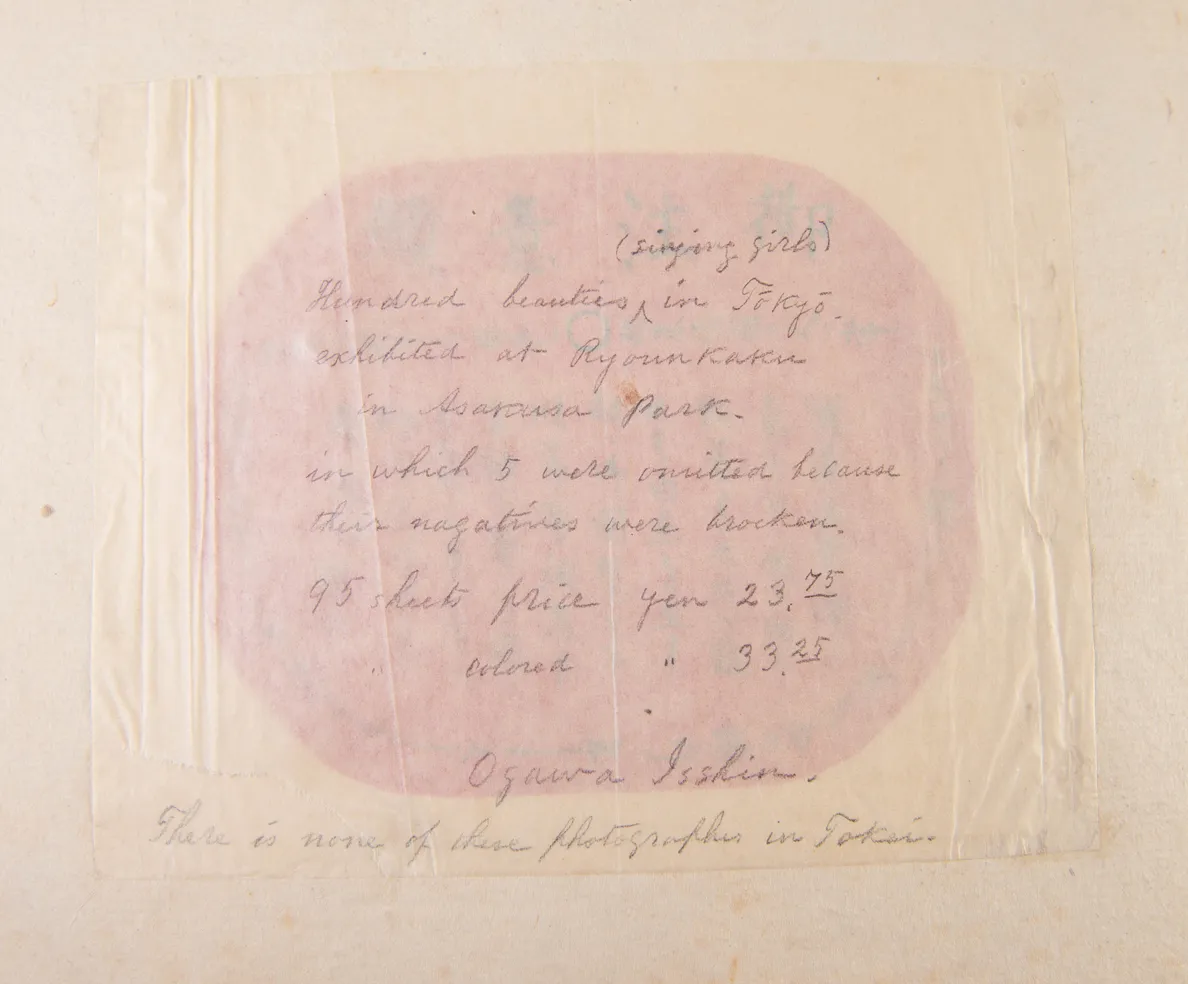 (singing girls)
Hundred beauties ‸ in Tōkyō.
exhibited at Ryounkaku
in Asakusa Park.
in which 5 were omitted because
their nagatives were brocken.
95 sheets price yen 23.75
" colored " 33.25
Ogawa Isshin.
There is none of these photographs in Tokei.